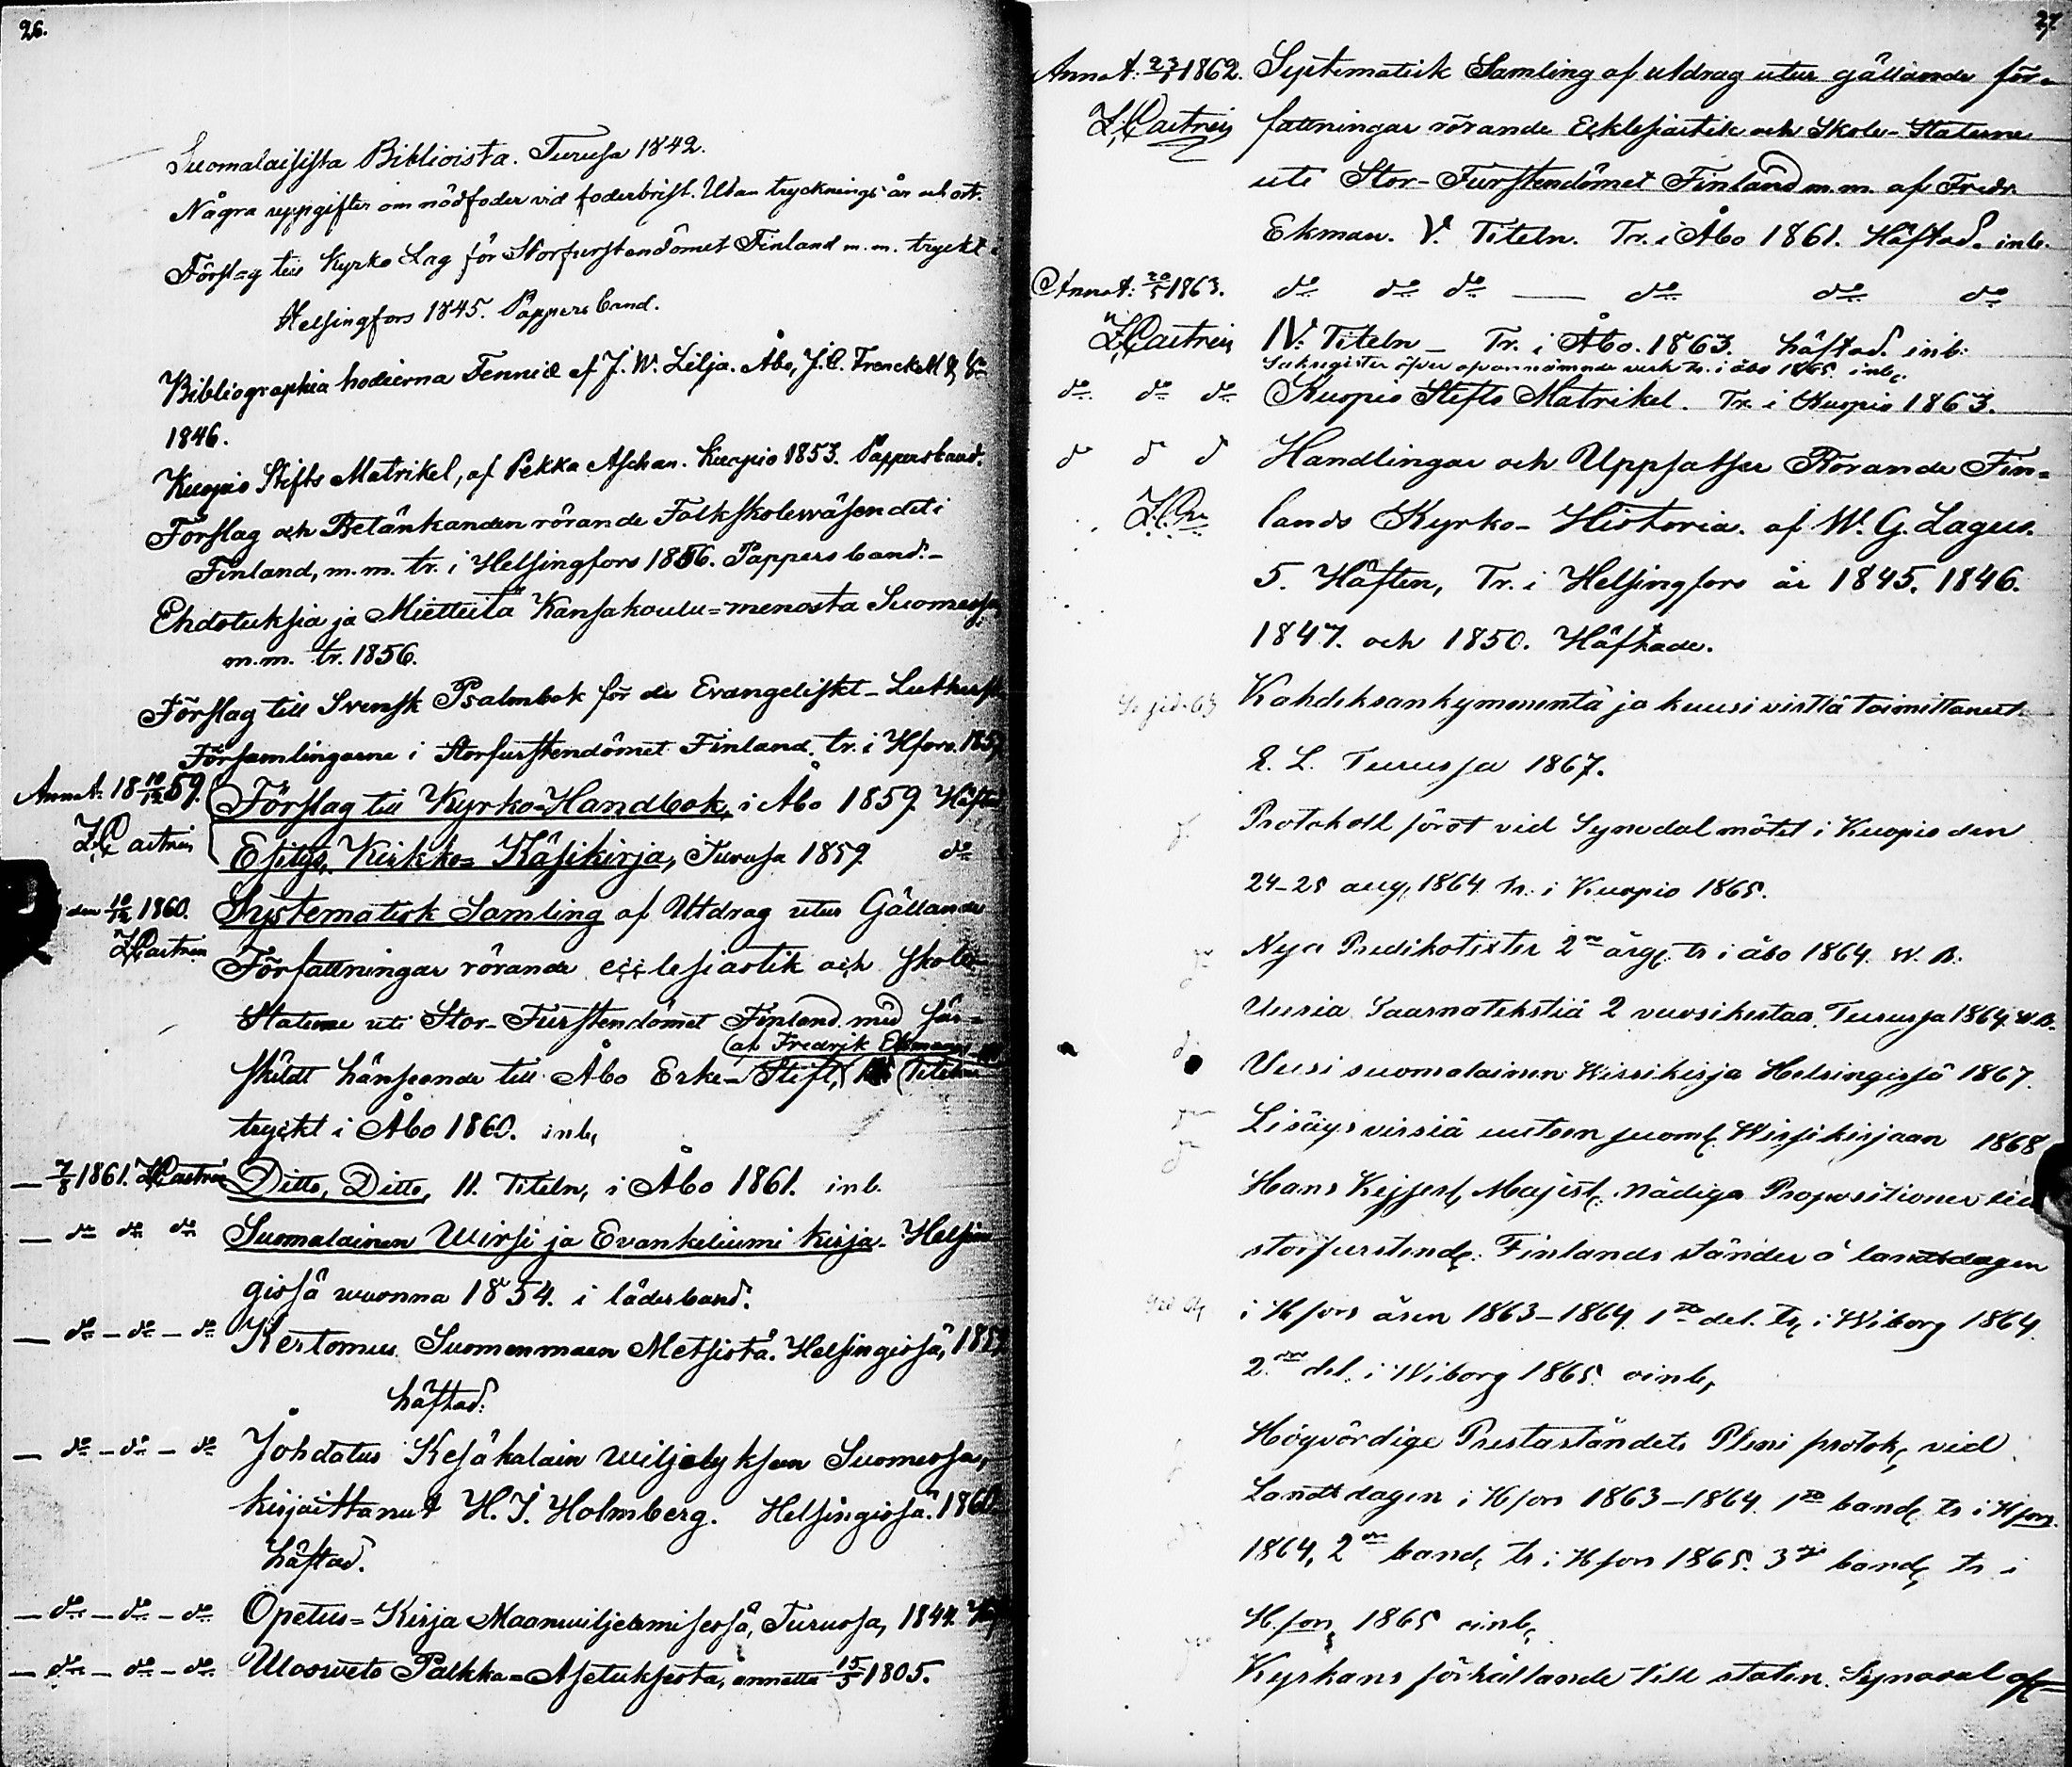 26.
Suomalaisista Biblioista. Turusa 1842.
Några uppgifter om nödfoder vid foderbrist. Utan trycknings år och ort.
Förslag till Kyrko Lag för Storfurstendömet Finland m.m. tryckt i
Helsingfors 1845. Pappersband.
Bibliographia hodierna Fenniæ af J. W. Lilja. Åbo, J. C. Frenckell &
1846.
Kuopio Stifts Matrikel, af Pekka Aschan. Kuopio 1853. Pappersband.
Förslag och Betänkanden rörande Folkskoleväsendet i
Finland, m.m. tr. i Helsingfors 1856. Pappersband.
Ehdotuksia ja Mietteitä Kansakoulu=menosta Suomessa,
m.m. tr. 1856.
Förslag till Svensk Psalmbok för de Evangeliskt-Lutherska
Församlingarne i Storfurstendömet Finland. tr. i Hfors. 1857
Annot. 18 10/12 59. Förslag till Kyrko-Handbok, i Åbo 1859. Häft
Z. Castrén Esitys, Kirkko=Käsikirja, Turusa 1859 do
den 10/12 1860. Systematisk Samling af Utdrag utur Gällande
Z. Castrén Författningar rörande ecclesiastik och Skole-
Staterne uti Stor-Furstendömet Finland med sär-
af Fredrik Ekman
skildt hänseende till Åbo Erke-Stift, Titeln
tryckt i Åbo 1860. inb.
— 7/8 1861. Z. Castrén Ditto, Ditto, 11. Titeln, i Åbo 1861. inb.
— do do do Suomalainen Wirsi ja Evankeliumi kirja. Helsin
gissä wuonna 1854. i läderband.
— do – do – do Kertomus Suomenmaan Metsistä. Helsingissä, 185
häftad.
— do – do – do Johdatus Kesäkalain wiljelyksen Suomessa,
kirjoittanut H. J. Holmberg. Helsingissä. 1860
häftad.
— do – do – do Opetus=Kirja Maanwiljelemisessä, Turussa, 1844.
— do – do – do Ulosweto Palkka=Asetuksesta, annettu 15/5 1805.
27.
Annot: 23/1 1862. Systematisk Samling af utdrag utur gällande för-
Z. Castrén fattningar rörande Ecklesiastik och Skole-Staterne
uti Stor-Furstendömet Finland m.m. af Fredr.
Ekman. V. Titeln. Tr. i Åbo 1861. Häftad. inb.
Annot: 20/5 1863. do do do — do do do
Z. Castrén IV: Titeln – Tr. i Åbo. 1863. häftad. inb:
Sakregister öfver ofvannämnde verk tr. i åbo 1865. inb.
do do do Kuopio Stifts Matrikel. Tr. i Kuopio 1863.
d d d Handlingar och Uppsatser Rörande Fin=
Z. Cn lands Kyrko-Historia. af W. G. Lagus.
5. Häften, Tr. i Helsingfors år 1845. 1846.
1847. och 1850. Häftade.
Kahdeksankymmentä ja kuusi virttä toimittanut
E. L. Turussa 1867.
Protokoll fördt vid Synodalmötet i Kuopio den
24–25 aug. 1864 tr. i Kuopio 1865.
Nya Predikotexter 2ne årg. tr i åbo 1864. W. B.
Uusia Saarnatekstiä 2 vuosikertaa. Turussa 1864. W. B.
Uusi suomalainen Wirsikirja Helsingissä 1867.
Lisäys virsiä uuteen suoml. Wirsikirjaan 1868
Hans Kejserl. Majest. nådiga Propositioner till
storfurstend. Finlands ständer å landtdagen
i Hfors åren 1863–1864. 1sta del. tr. i Wiborg 1864.
2dra del. i Wiborg 1865. oinb.
Högvördige Prestaståndets Pleni protok. vid
Landtdagen i Hfors 1863–1864. 1sta band. tr i Hfors.
1864, 2dra band. tr. i Hfors 1865. 3dje band. tr i
H.fors 1865 oinb.
Kyrkans förhållande till staten. Synodal af-